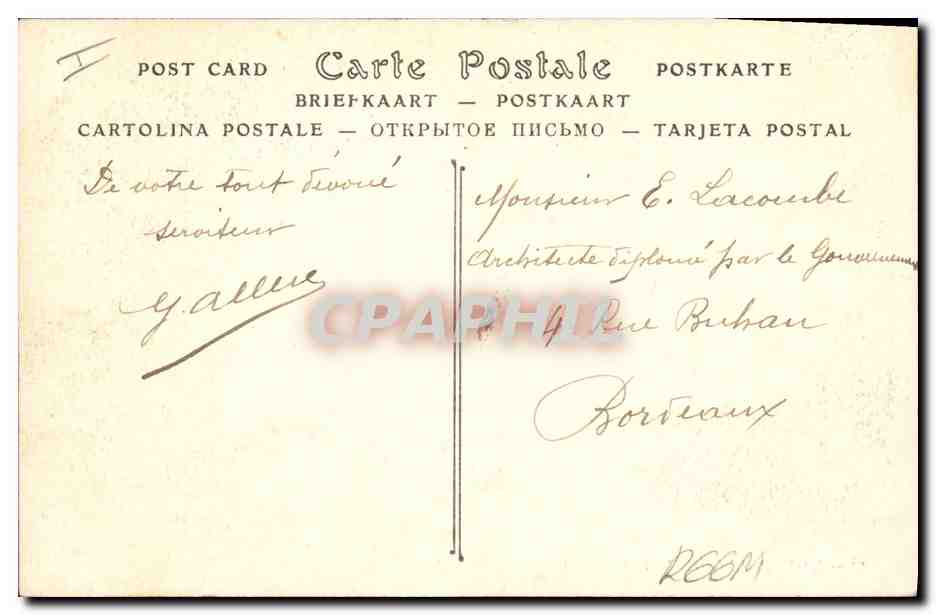 POST CARD Carte Postale POSTKARTE
BRIEFKAART — POSTKAART
CARTOLINA POSTALE — ОТКРЫТОЕ ПИСЬМО — TARJETA POSTAL
De votre tout dévoué
serviteur
Monsieur E. Lacombe
Architecte diplomé par le Gouvernement
9 Rue Buhan
Bordeaux
CPAPHIL
R66M